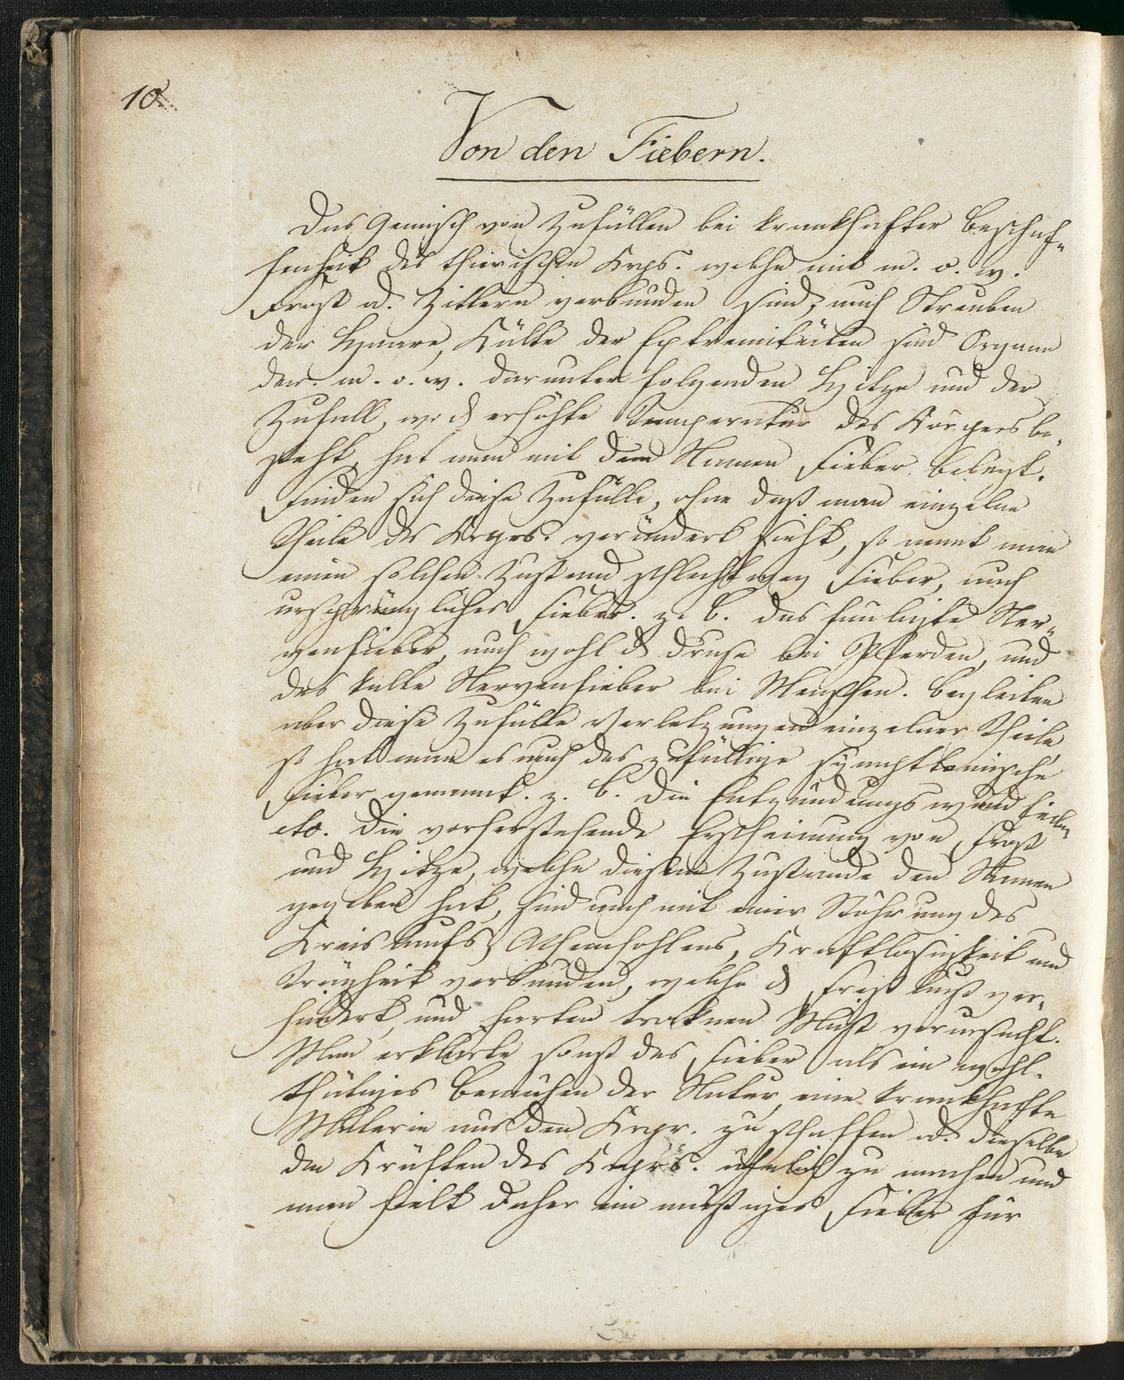 10.
Von den Fiebern.
Das Gemisch von Zufällen bei krankhafter Beschaf-
fenheit des thierischen Krps. welche mit m. o. w.
Frost od. Zittern verbunden sind, auch Sträuben
der Haare, Kälte der Extremitäten sind Organe
der m. o. w. darunter folgenden Hitze und der
Zufall, wo d erhöhte Temperatur des Körpers be-
steht, hat man mit dem Namen Fieber belegt.
Finden sich diese Zufälle, ohne daß man einzelne
Theile des Krprs. verändert sieht, so nennt man
einen solchen Zustand schlechtweg Fieber, auch
ursprüngliches Fieber. z. B. das fauligte Ner-
venfieber, auch wohl d Druse bei Pferden, und
das kalte Nervenfieber bei Menschen. Begleiten
aber diese Zufälle Verletzungen einzelner Theile
so hat man es auch das zufällige symptomische
Fieber genannt. z. B. die Entzündungs wund fieber
etc. Die vorherstehende Erscheinung von Frost
und Hitze, welche diesem Zustande den Namen
gegeben hat, sind auch mit einer Stöhrung des
Kreislaufs, Athemhohlens, Kraftlosigkeit und
Trägheit verbunden, welche d Freß lust ver-
hindert, und harten troknen Mist verursacht.
Man erklärte sonst das Fieber als ein wohl-
thätiges Bemühen der Natur, eine krankhafte
Materie aus dem Krpr. zu schaffen od. dieselbe
den Kräften des Krprs. ähnlich zu machen und
man hielt daher ein mäßiges Fieber für